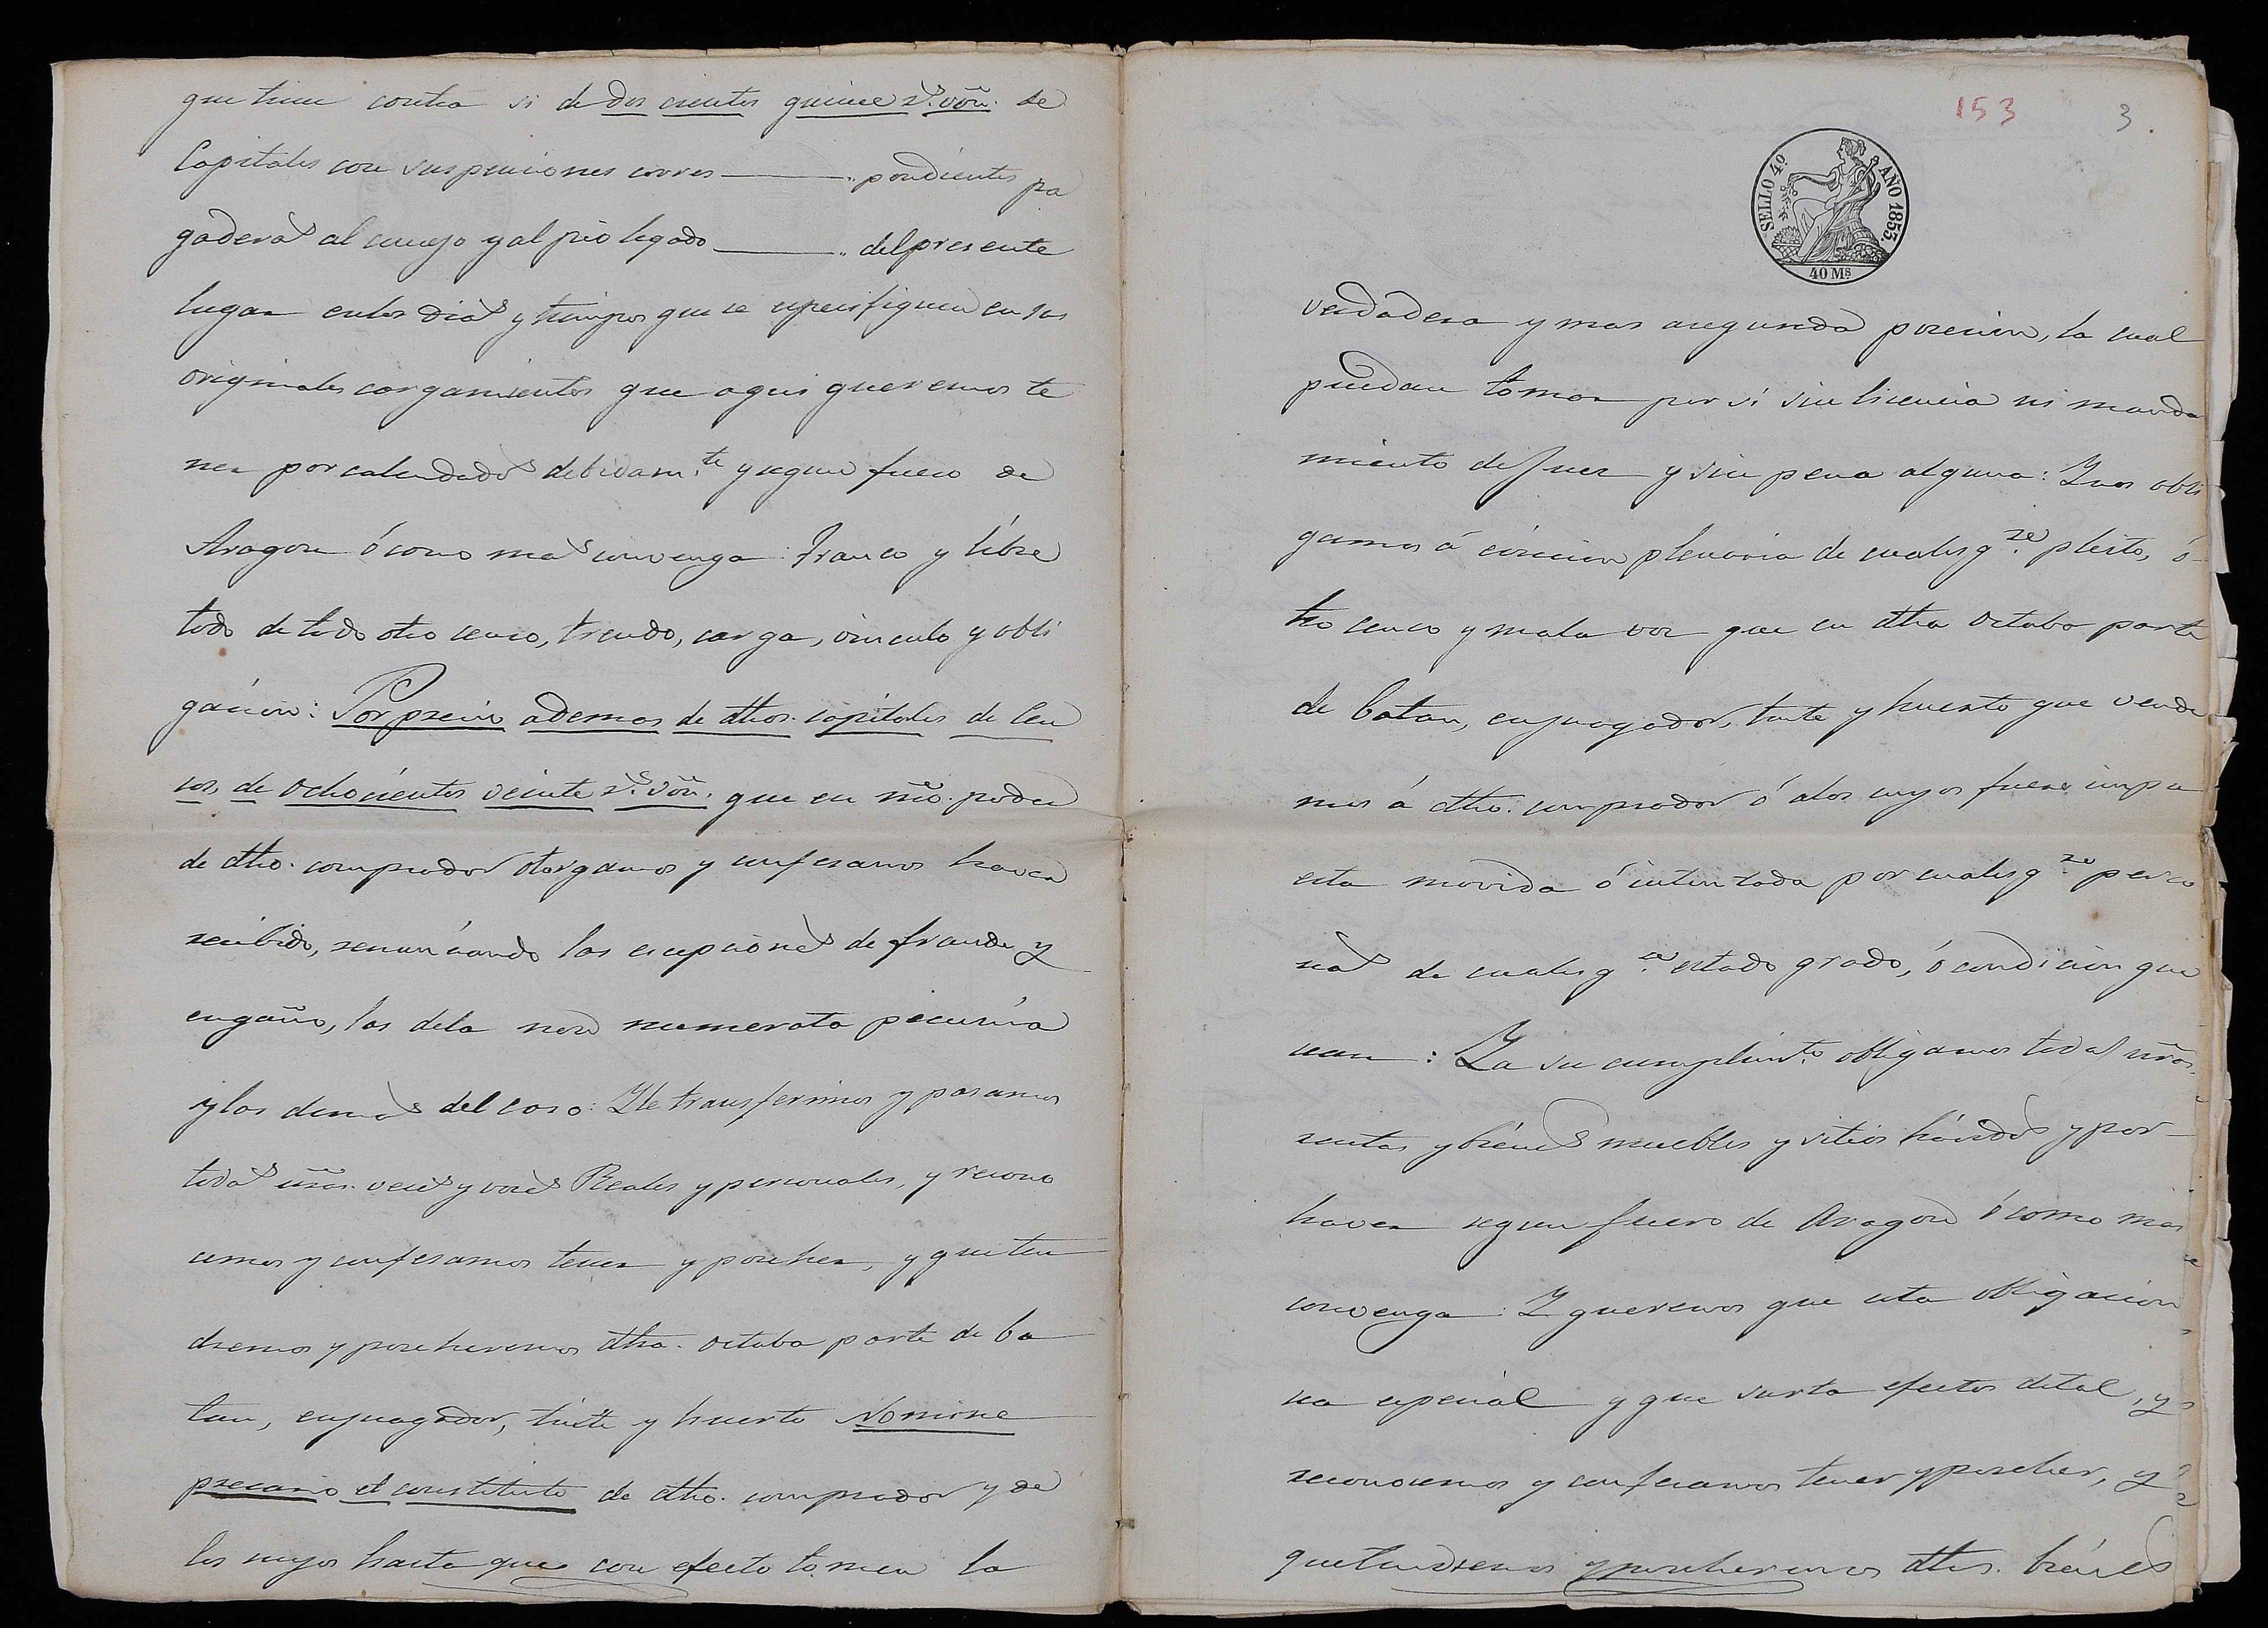 que tiene contra si de dos cientos quince r.s von. de
Capitales con sus penciones corres———.. pondientes pa
gaderas al concejo y al pio legado ———.. del presente
lugar en los dias y tiempos que se especifiquen en sus
originales cargamientos que aqui queremos te
ner por calendados debidam.te y segun fuero de
Aragon ó como mas convenga: franco y libre
todo de todo otro censo, treudo, carga, vinculo y obli
gación: Por precio ademas de dhos. capitales de cen
sos, de ochocientos veinte r.s von. que en nro. poder
de dho. comprador otorgamos y confesamos haver
recibido, renunciando las escepciones de fraude y
engaño, las dela non numerata pecunia
y las demas del caso: Y le transferimos y pasamos
todas nras. veces y voces Reales y personales, y recono
cemos y confesamos tener y poseher, y que ten
dremos y poseheremos dha. octaba parte de ba
tan, enjuagador, tinte y huerto Nomine
precario et constituto de dho. comprador y de
los suyos hasta que con efecto tomen la
153 3.
SELLO 4º. AÑO 1853.
40 Ms
verdadera y mas asegurada posesion, la cual
puedan tomar por sí sin licencia ni manda
miento de Juez y sin pena alguna: Y nos obli
gamos á evicción plenaria de cualesq.re pleito, ó
tro censo y mala voz que en dha octaba parte
de batan, enjuagador, tinte y huerto que vende
mos á dho. comprador ó alos suyos fuere impu
esta movida ó intentada por cualesq.re perso
nas de cualesq.re estado grado, ó condición que
sean: Y a su cumplim.to obligamos todas nras.
rentas y bienes muebles y sitios havidos y por
haver segun fuero de Aragon ó como mas
convenga: Y queremos que esta obligación
sea especial y que surta efectos de tal, y
reconocemos y confesamos tener y poseher, y
que tendremos y poseheremos dhos. bienes